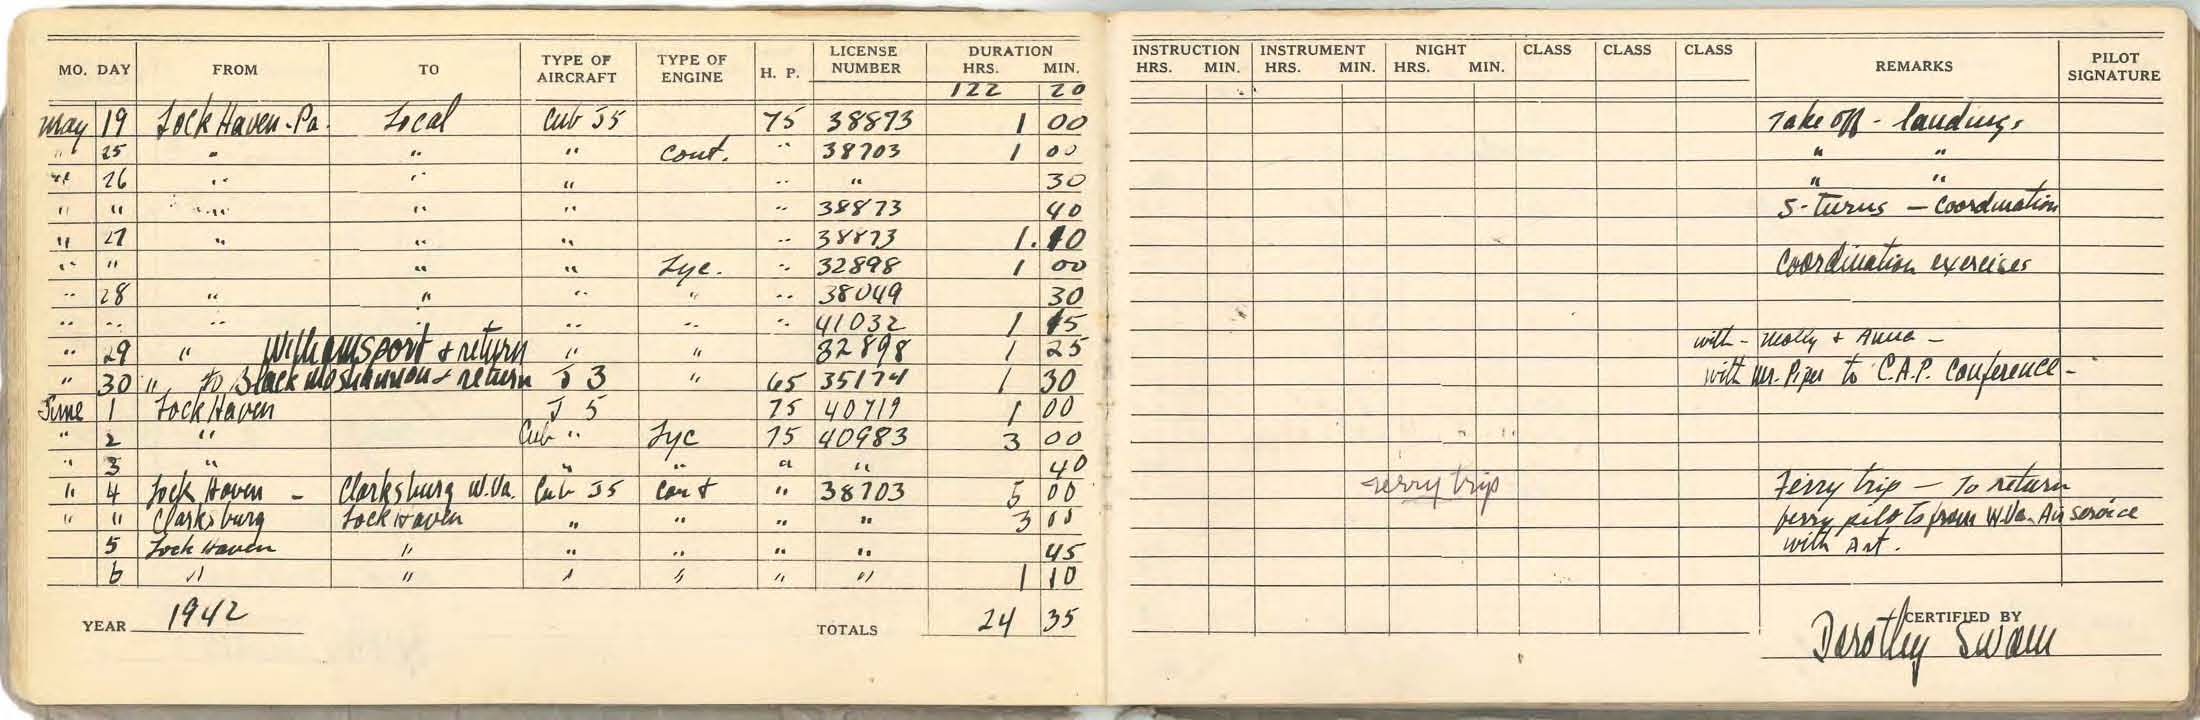 MO. DAY FROM TO TYPE OF AIRCRAFT TYPE OF ENGINE H. P. LICENSE NUMBER DURATION HRS. MIN. INSTRUCTION HRS. MIN. INSTRUMENT HRS. MIN. NIGHT HRS. MIN. CLASS CLASS CLASS REMARKS PILOT SIGNATURE
122 20
May 19 Lock Haven-Pa. Local Cub J5 75 38873 1 00 Take off - landings
" 25 " " " Cont. " 38703 1 00 " "
" 26 " " " " " 30 " "
" " " " " " 38873 40 S-turns - Coordination
" 27 " " " " 38873 1. 10
" " " " Lyc. " 32898 1 00 Coordination exercises
" 28 " " " " " 38049 30
" " " " " " " 41032 1 15
" 29 " Williamsport & return " " 32898 1 25 with - Molly & Anna -
" 30 " to Black Moshannon & return J 3 " 65 35174 1 30 with Mr. Piper to C.A.P. Conference -
June 1 Lock Haven J 5 75 40719 1 00
" 2 " Cub " Lyc 75 40983 3 00
" 3 " " " " " 40
" 4 Lock Haven - Clarksburg W.Va. Cub J5 Cont " 38703 5 00 ferry trip Ferry trip - To return
" " Clarksburg Lock Haven " " " " 3 00 ferry pilots from W.Va. Air service
5 Lock Haven " " " " " 45 with Art.
6 " " " " " " 1 10
YEAR 1942 TOTALS 24 35 CERTIFIED BY
Dorothy Swain